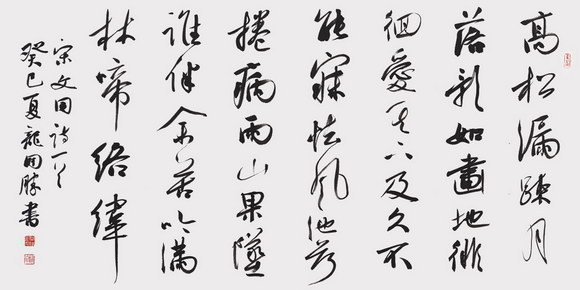 高松漏疎月
落影如畫地徘
徊愛其下及久不
能寐怯風池荷
捲病雨山果墜
誰伴余苦吟滿
林啼絡緯
宋文同詩一首
癸巳夏龍開勝書